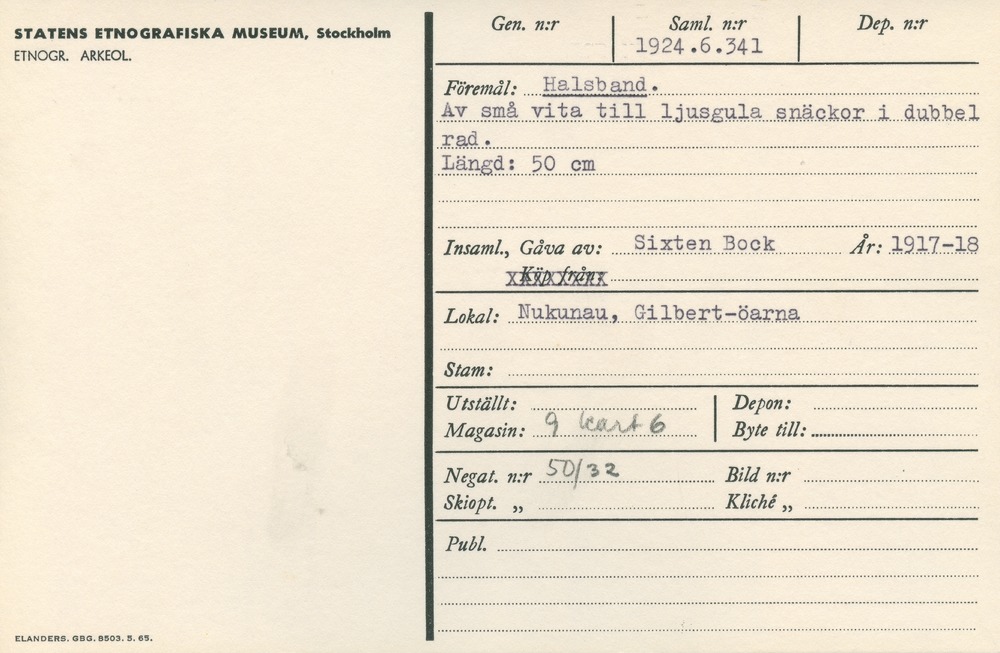 STATENS ETNOGRAFISKA MUSEUM, Stockholm
ETNOGR. ARKEOL.
Gen. n:r
Saml. n:r
1924.6.341
Dep. n:r
Föremål: Halsband.
Av små vita till ljusgula snäckor i dubbel
rad.
Längd: 50 cm
Insaml., Gåva av: Sixten Bock År: 1917-18
Köp från:
Lokal: Nukunau, Gilbert-öarna
Stam:
Utställt:
Magasin: 9 kart 6
Depon:
Byte till:
Negat. n:r 50/32
Skiopt. „
Bild n:r
Kliché „
Publ.
ELANDERS. GBG. 8503. 5. 65.